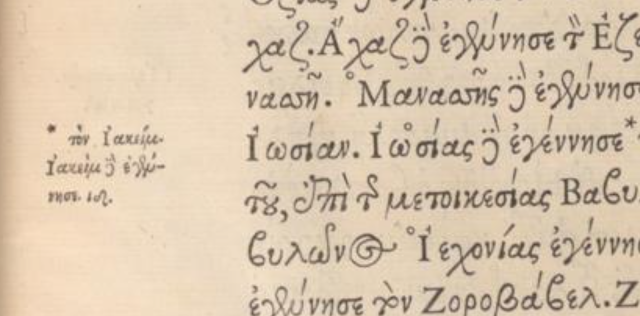 χαζ. Ἄχαζ δὲ ἐγέννησε τὸν Ἐζε
νασσῆ. Μανασσῆς δὲ ἐγέννησ
Ἰωσίαν. Ἰωσίας δὲ ἐγέννησε*
του, ἐπὶ τῆς μετοικεσίας Βαβυ
βυλῶνος Ἰεχονίας ἐγένν
ἐγέννησε τὸν Ζοροβάβελ. Ζ
* τὸν Ἰακείμ.
Ἰακεὶμ δὲ ἐγέν-
νησε